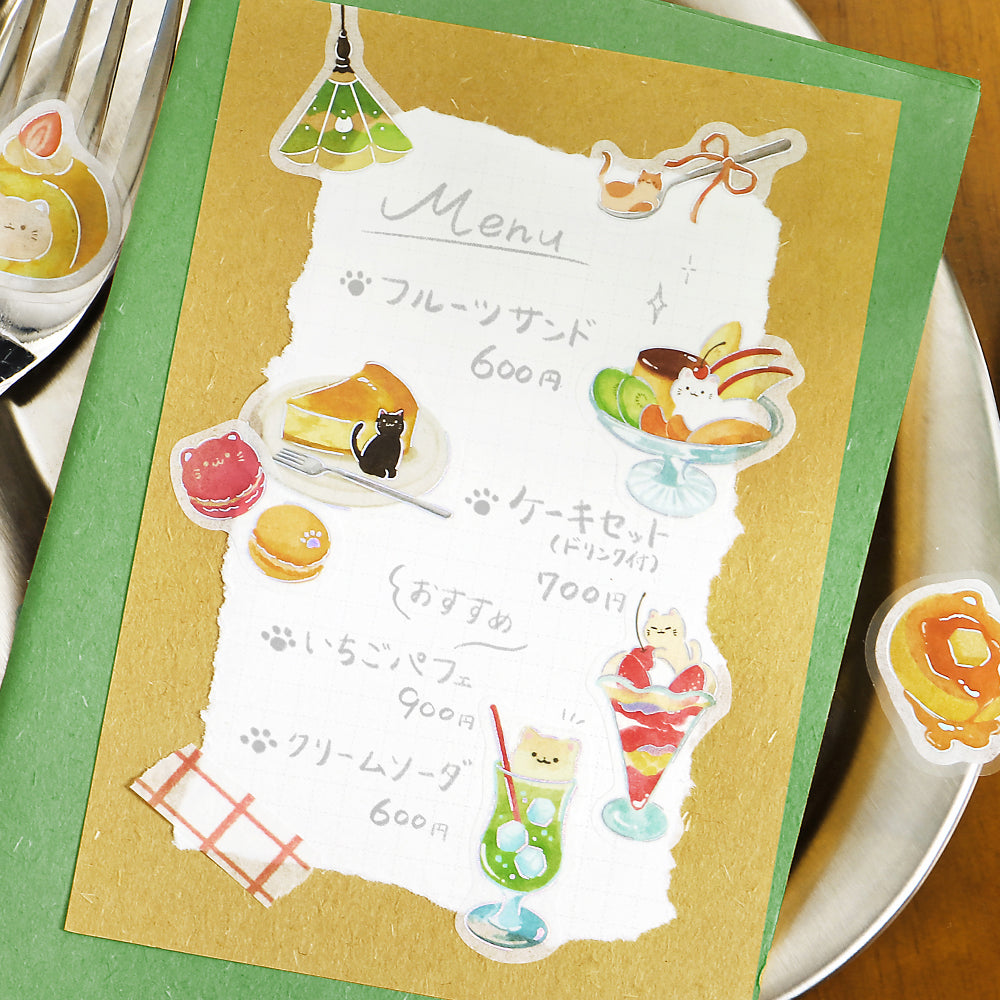 Menu
フルーツサンド
600円
ケーキセット
(ドリンク付)
700円
おすすめ
いちごパフェ
900円
クリームソーダ
600円